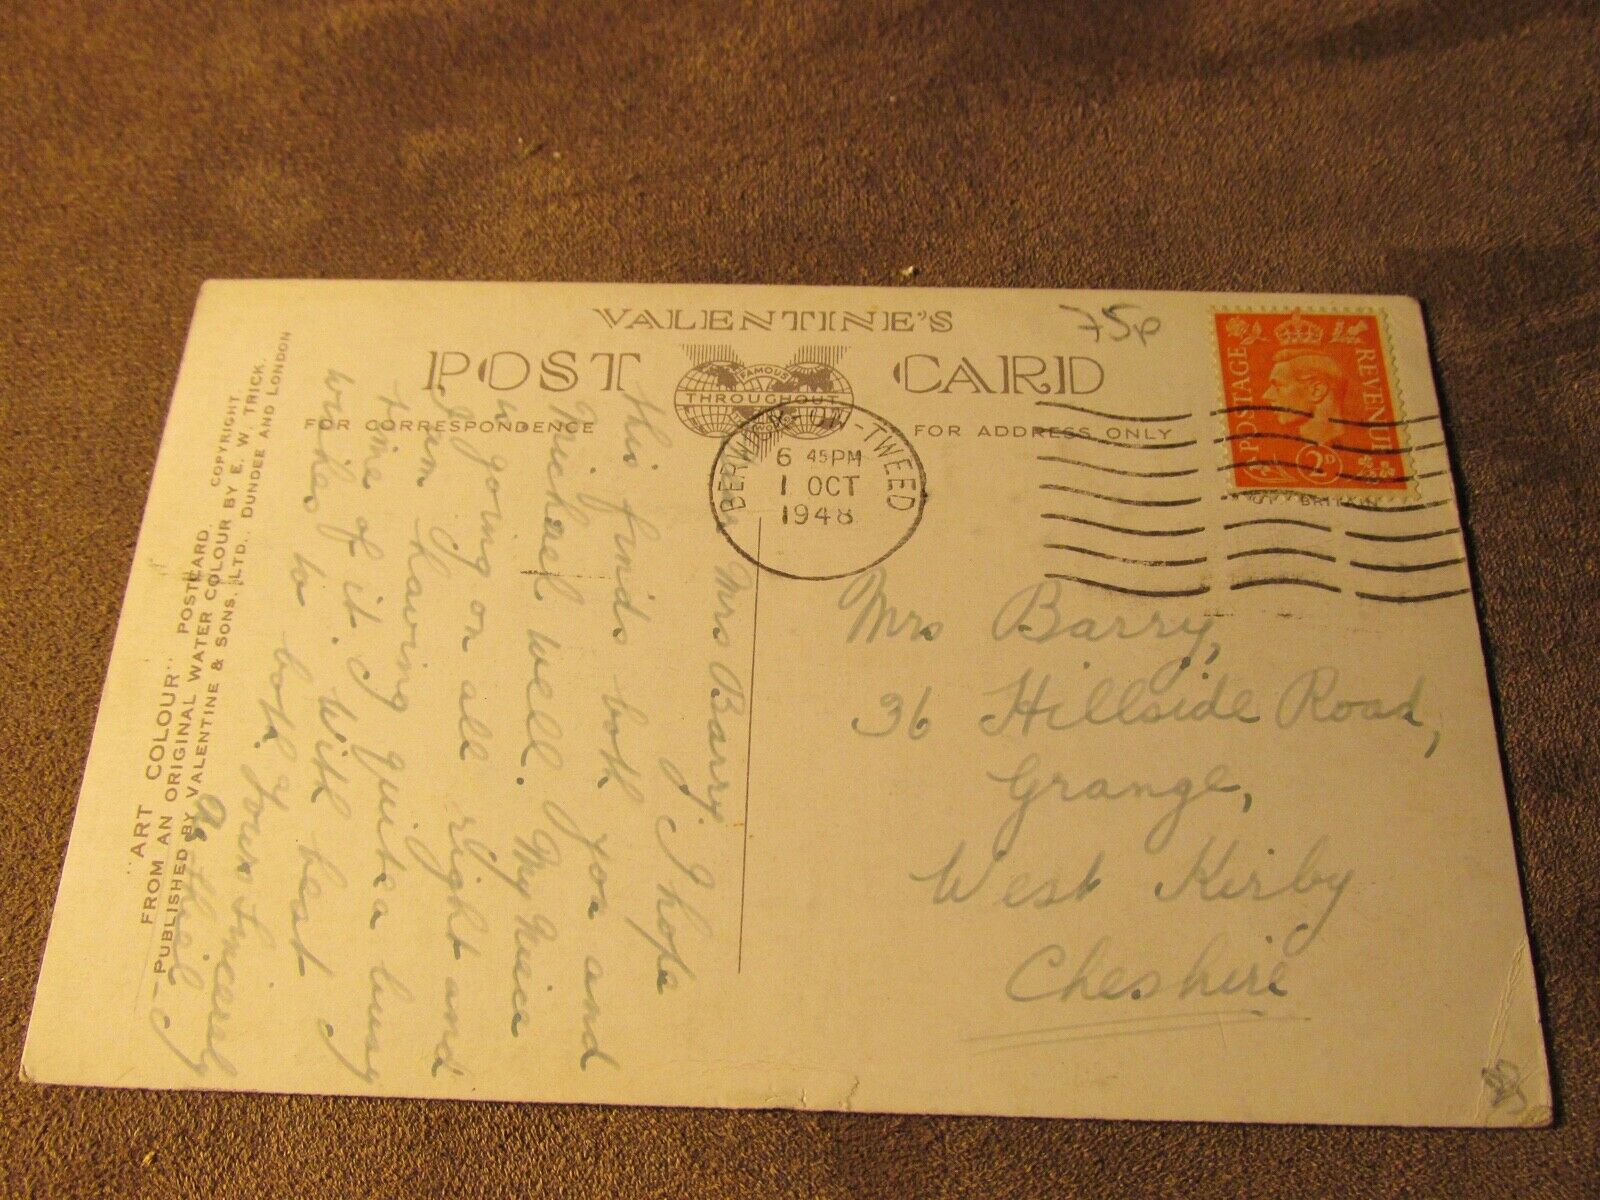 VALENTINE'S
POST CARD
FAMOUS
THROUGHOUT
THE WORLD
FOR CORRESPONDENCE
FOR ADDRESS ONLY
75p
POSTAGE REVENUE
2D
BERWICK-ON-TWEED
6 45PM
1 OCT
1948
BRITAIN
Mrs Barry,
36 Hillside Road,
Grange,
West Kirby
Cheshire
Mrs Barry. I hope
this finds both you and
Michael well. My Niece
is going on all right and
I am having quite a busy
time of it. With best
wishes to both. Yours Sincerely
COPYRIGHT.
"ART COLOUR" POSTCARD.
FROM AN ORIGINAL WATER COLOUR BY E. W. TRICK.
PUBLISHED BY VALENTINE & SONS. LTD., DUNDEE AND LONDON